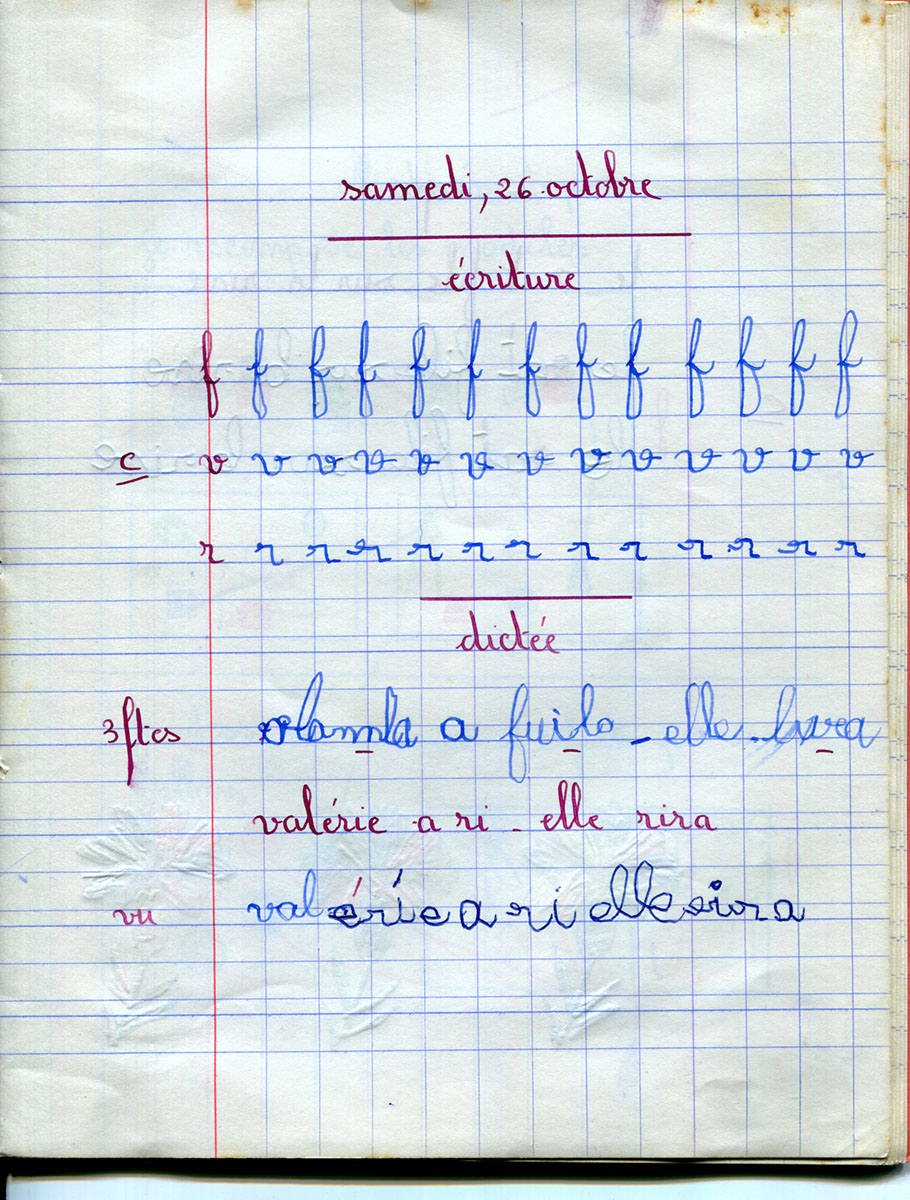 samedi, 26 octobre
écriture
f f f f f f f f f f f f f
c v v v v v v v v v v v v v
r r r r r r r r r r r r r
dictée
3 ftes a elle
valérie a ri - elle rira
vu valérie a ri elle